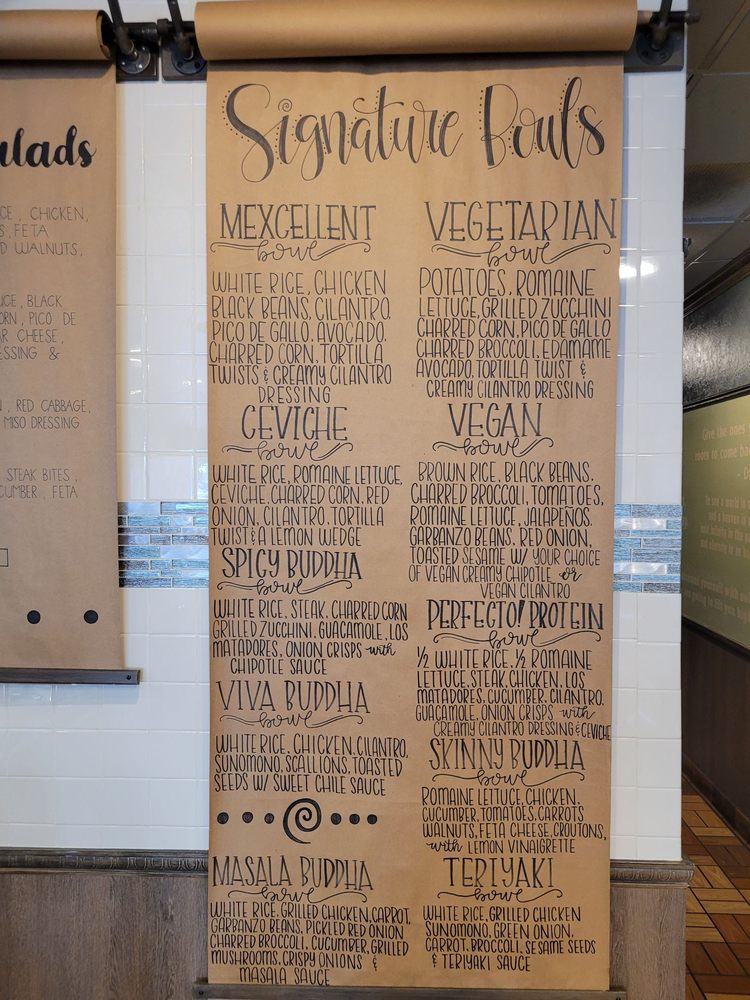 ulads
CE, CHICKEN,
S, FETA
D WALNUTS,
UCE, BLACK
ORN, PICO DE
AR CHEESE,
ESSING &
N, RED CABBAGE,
MISO DRESSING
STEAK BITES,
CUMBER, FETA
Signature Bowls
MEXCELLENT
bowl
WHITE RICE, CHICKEN
BLACK BEANS, CILANTRO,
PICO DE GALLO, AVOCADO,
CHARRED CORN, TORTILLA
TWISTS & CREAMY CILANTRO
DRESSING
CEVICHE
bowl
WHITE RICE, ROMAINE LETTUCE,
CEVICHE, CHARRED CORN, RED
ONION, CILANTRO, TORTILLA
TWIST & A LEMON WEDGE
SPICY BUDDHA
bowl
WHITE RICE, STEAK, CHARRED CORN
GRILLED ZUCCHINI, GUACAMOLE, LOS
MATADORES, ONION CRISPS with
CHIPOTLE SAUCE
VIVA BUDDHA
bowl
WHITE RICE, CHICKEN, CILANTRO,
SUNOMONO, SCALLIONS, TOASTED
SEEDS W/ SWEET CHILE SAUCE
MASALA BUDDHA
bowl
WHITE RICE, GRILLED CHICKEN, CARROT,
GARBANZO BEANS, PICKLED RED ONION
CHARRED BROCCOLI, CUCUMBER, GRILLED
MUSHROOMS, CRISPY ONIONS &
MASALA SAUCE
VEGETARIAN
bowl
POTATOES, ROMAINE
LETTUCE, GRILLED ZUCCHINI
CHARRED CORN, PICO DE GALLO
CHARRED BROCCOLI, EDAMAME
AVOCADO, TORTILLA TWIST &
CREAMY CILANTRO DRESSING
VEGAN
bowl
BROWN RICE, BLACK BEANS,
CHARRED BROCCOLI, TOMATOES,
ROMAINE LETTUCE, JALAPEÑOS,
GARBANZO BEANS, RED ONION,
TOASTED SESAME W/ YOUR CHOICE
OF VEGAN CREAMY CHIPOTLE or
VEGAN CILANTRO
PERFECTO! PROTEIN
bowl
½ WHITE RICE, ½ ROMAINE
LETTUCE, STEAK, CHICKEN, LOS
MATADORES, CUCUMBER, CILANTRO,
GUACAMOLE, ONION CRISPS with
CREAMY CILANTRO DRESSING & CEVICHE
SKINNY BUDDHA
bowl
ROMAINE LETTUCE, CHICKEN,
CUCUMBER, TOMATOES, CARROTS
WALNUTS, FETA CHEESE, CROUTONS,
with LEMON VINAIGRETTE
TERIYAKI
bowl
WHITE RICE, GRILLED CHICKEN
SUNOMONO, GREEN ONION,
CARROT, BROCCOLI, SESAME SEEDS
& TERIYAKI SAUCE
Give the ones